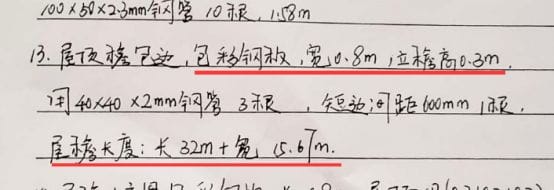 100×50×2.3mm钢管 10根, 1.58m
13. 屋顶檐包边, 包彩钢板, 宽0.8m, 立檐高0.3m.
用40×40×2mm钢管 3根, 短边间距600mm 1根.
屋檐长度: 长32m+宽15.67m.